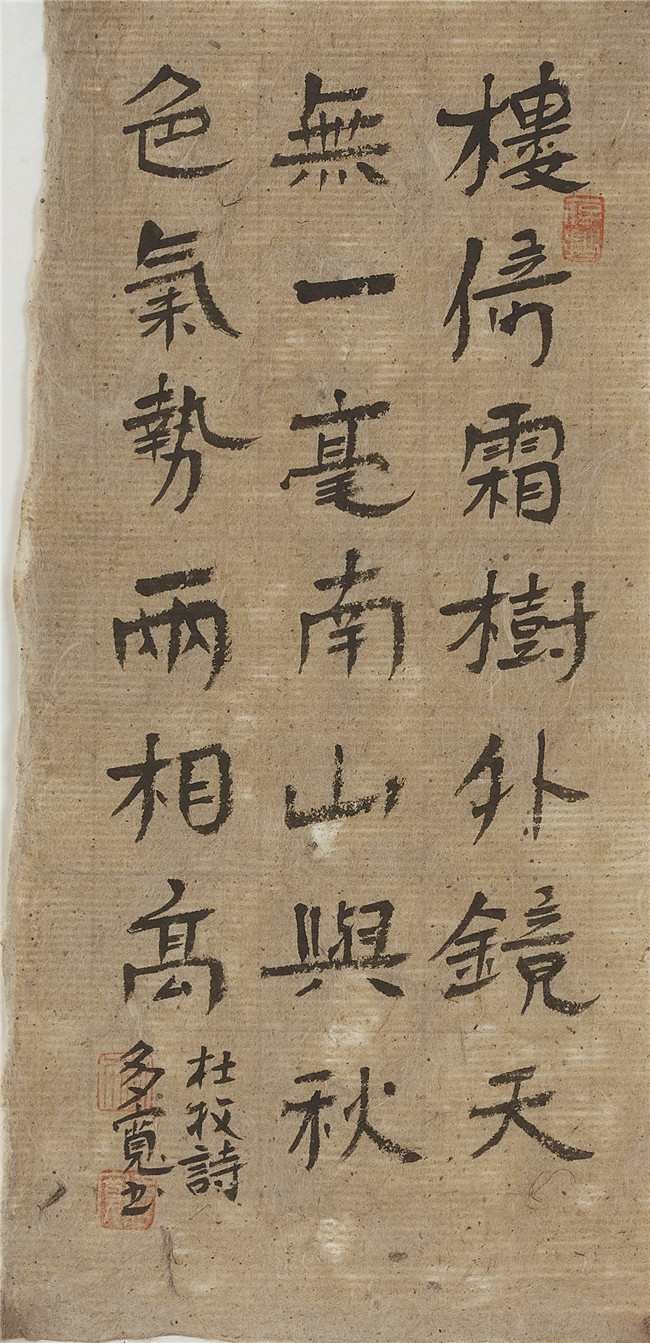 樓倚霜樹外鏡天
無一毫南山與秋
色氣勢兩相高
杜牧詩
多寬书